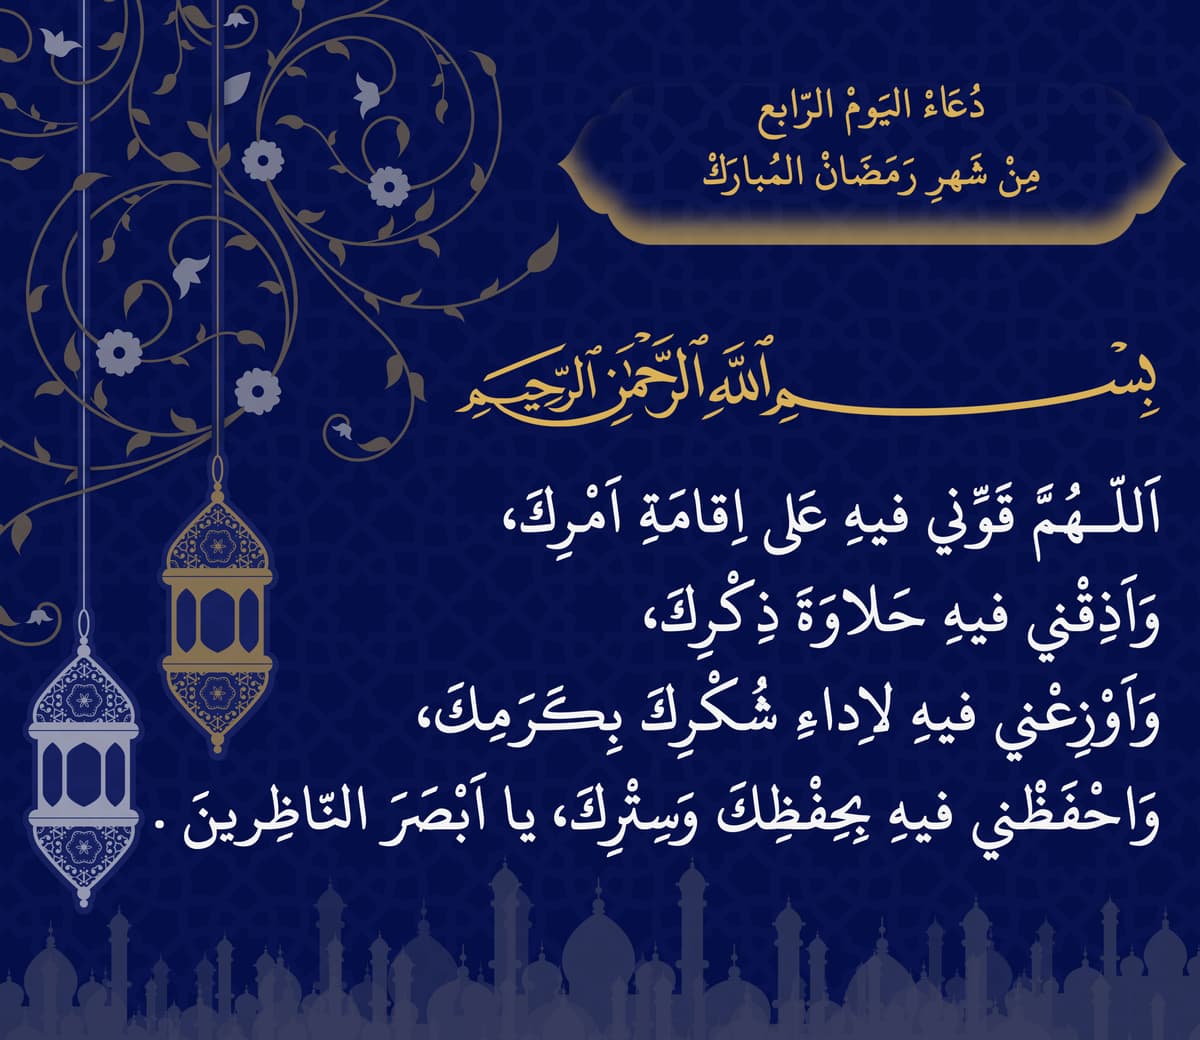 دُعَاءْ اليَومْ الرّابع
مِنْ شَهرِ رَمَضَانْ المُبارَكْ
بِسْمِ ٱللَّهِ ٱلرَّحْمَٰنِ ٱلرَّحِيمِ
اَللّـهُمَّ قَوِّني فيهِ عَلى اِقامَةِ اَمْرِكَ،
وَاَذِقْني فيهِ حَلاوَةَ ذِكْرِكَ،
وَاَوْزِعْني فيهِ لاِداءِ شُكْرِكَ بِكَرَمِكَ،
وَاحْفَظْني فيهِ بِحِفْظِكَ وَسِتْرِكَ، يا اَبْصَرَ النّاظِرينَ .